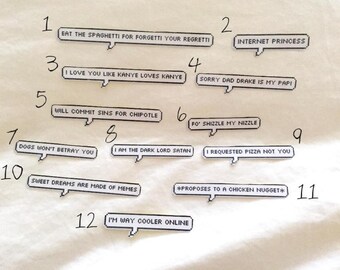 1
EAT THE SPAGHETTI FOR FORGETTI YOUR REGRETTI
2
INTERNET PRINCESS
3
I LOVE YOU LIKE KANYE LOVES KANYE
4
SORRY DAD DRAKE IS MY PAPI
5
WILL COMMIT SINS FOR CHIPOTLE
6
FO' SHIZZLE MY NIZZLE
7
DOGS WON'T BETRAY YOU
8
I AM THE DARK LORD SATAN
9
I REQUESTED PIZZA NOT YOU
10
SWEET DREAMS ARE MADE OF MEMES
*PROPOSES TO A CHICKEN NUGGET*
11
12
I'M WAY COOLER ONLINE